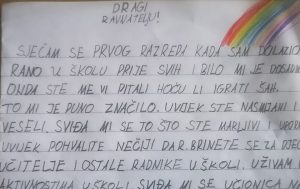 DRAGI
RAVNATELJU!
SJEĆAM SE PRVOG RAZREDA KADA SAM DOLAZIO
RANO U ŠKOLU PRIJE SVIH I BILO MI JE DOSADNO
ONDA STE ME VI PITALI HOĆU LI IGRATI ŠAH.
TO MI JE PUNO ZNAČILO. UVIJEK STE NASMIJANI I
VESELI. SVIĐA MI SE TO ŠTO STE MARLJIVI I
UVIJEK POHVALITE NEČIJI DAR. BRINETE SE ZA
UČITELJE I OSTALE RADNIKE U ŠKOLI. UŽIVAM
AKTIVNOSTIMA U ŠKOLI. SVIĐA MI SE UČIONICA NA